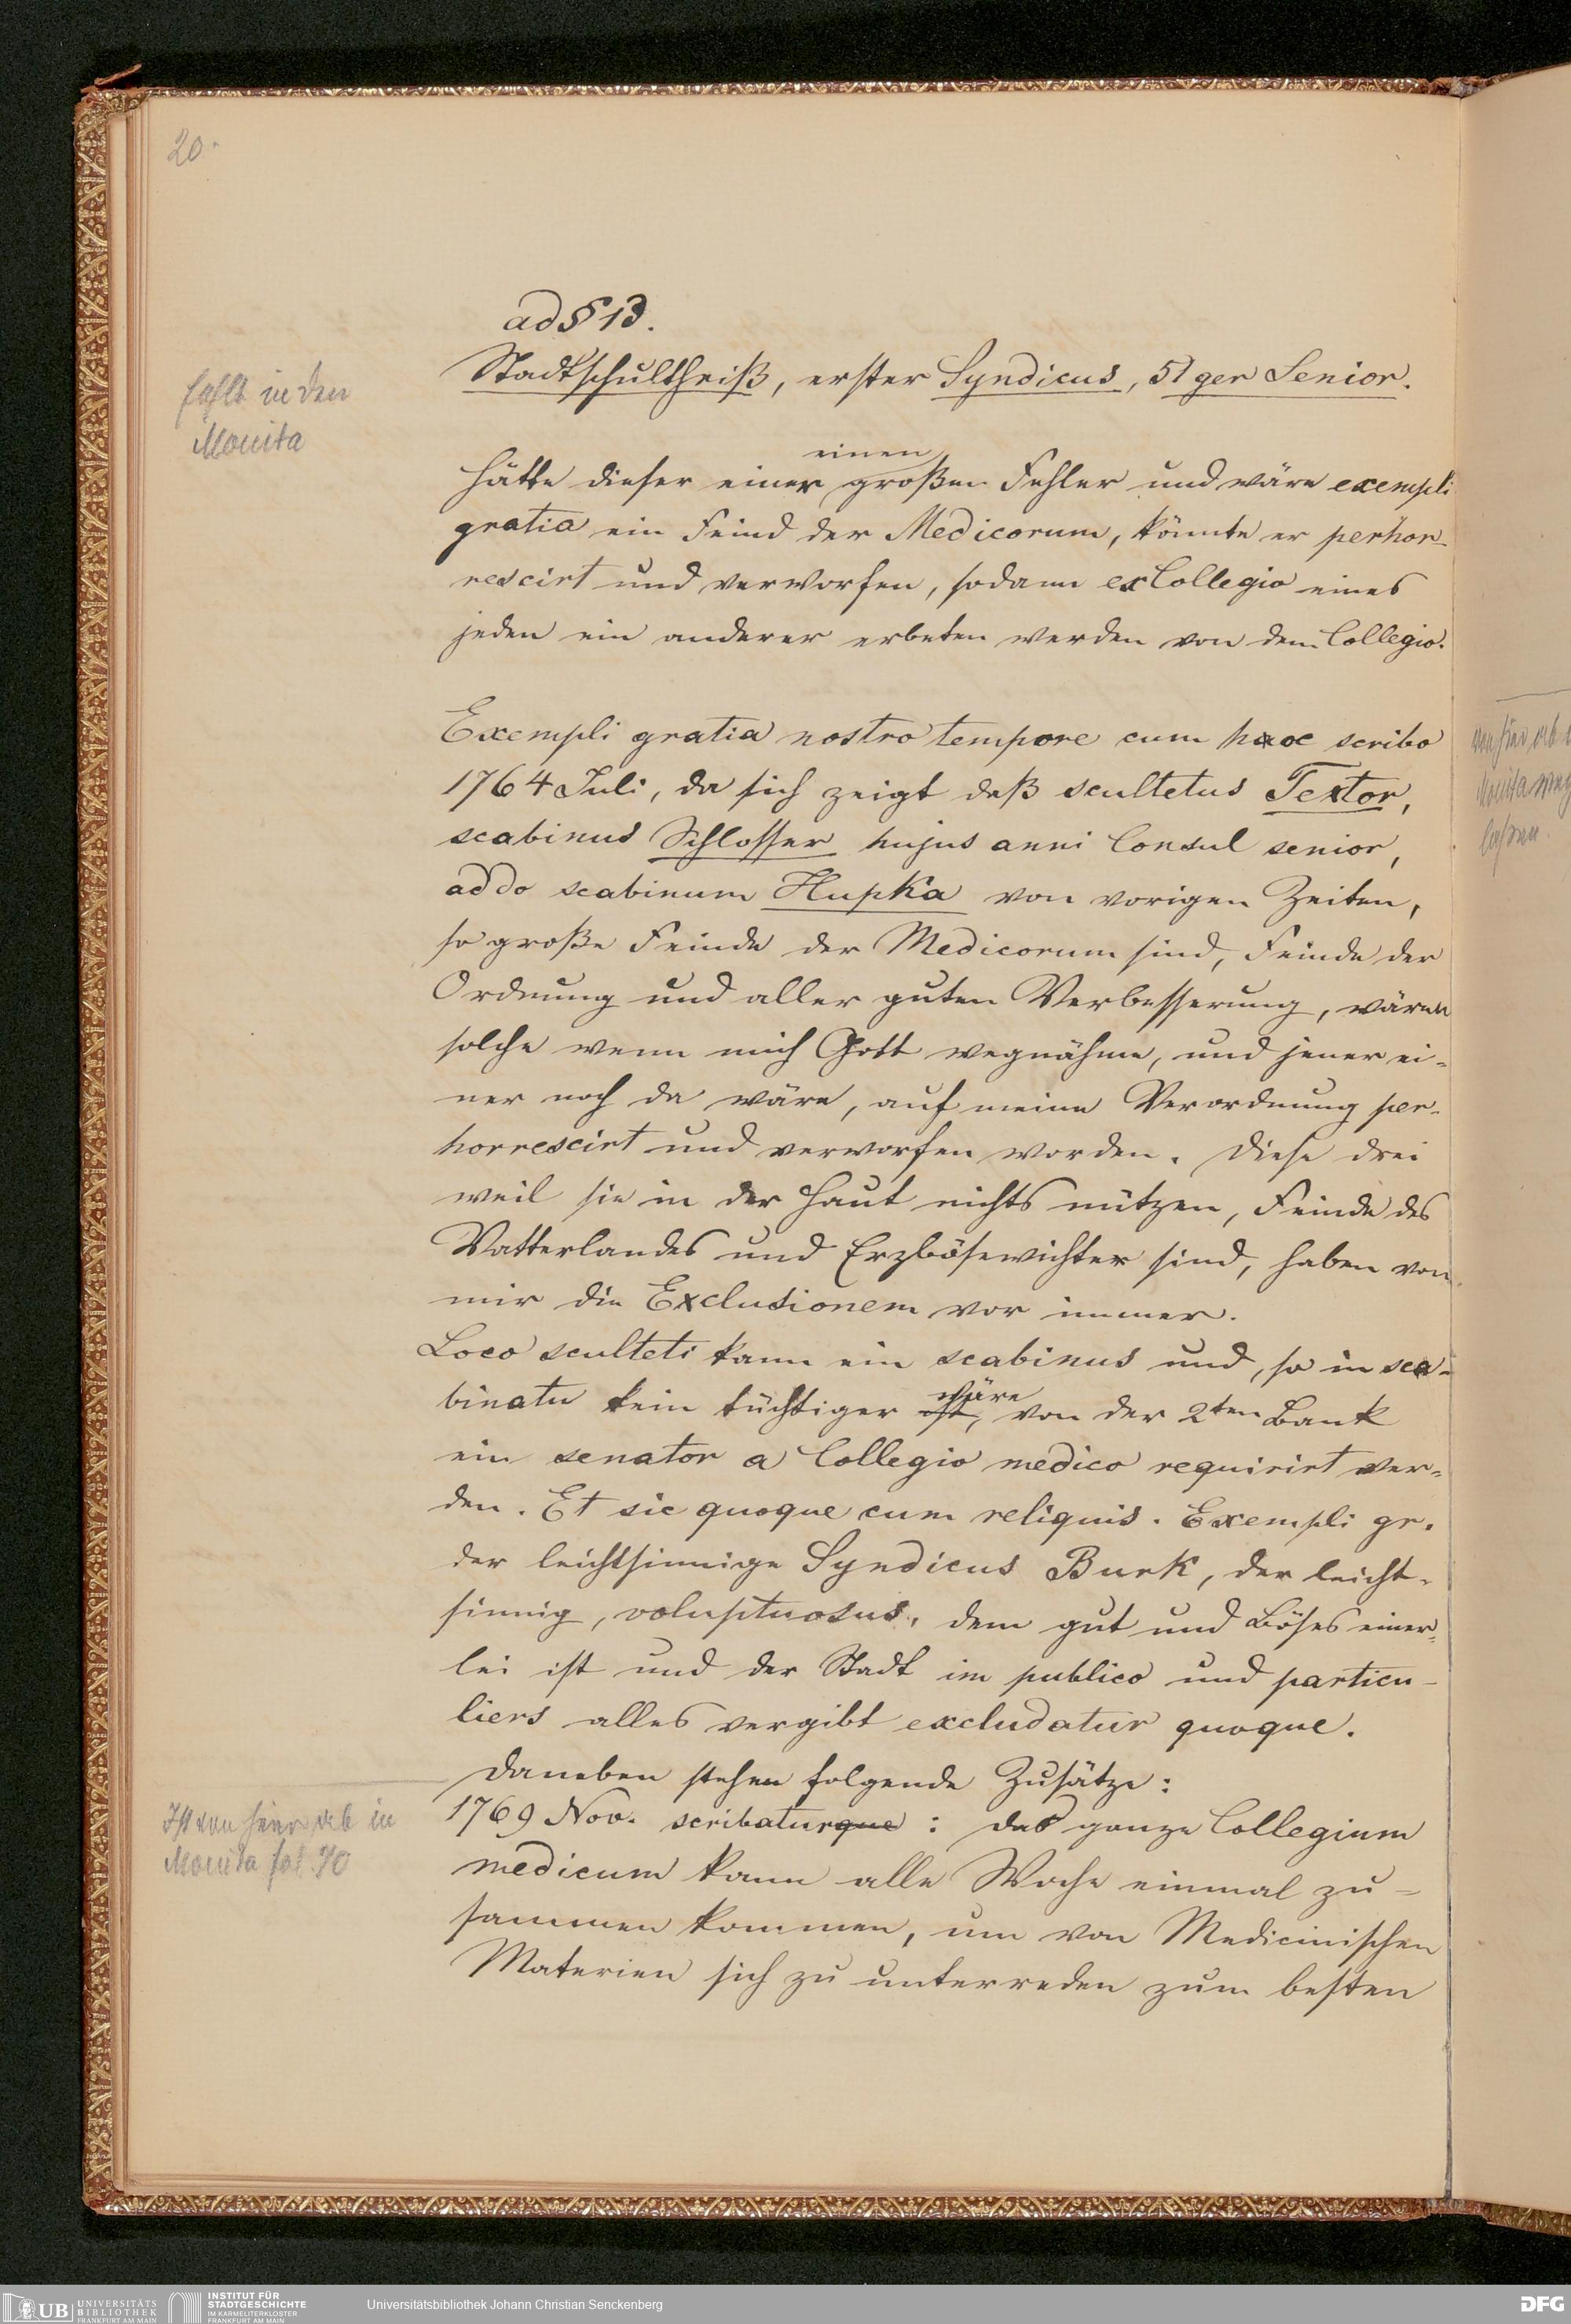 20.
ad § 13.
Stadtschultheiß, erster Syndicus, 51ger Senior.
fehlt in den
Monita
einen
Hätte dieser einer großen Fehler und wäre exempli
gratia ein Feind der Medicorum, könnte er perhor-
rescirt und verworfen, sodann ex Collegio eines
jeden ein anderer erbeten werden von dem Collegio.
Exempli gratia nostro tempore cum haec scribo
1764 Juli, da sich zeigt daß scultetus Textor,
scabinus Schlosser hujus anni Consul senior,
addo scabinum Hupka von vorigen Zeiten,
so große Feinde der Medicorum sind, Feinde der
Ordnung und aller guten Verbesserung, wären
solche wenn mich Gott wegnähme, und jener ei-
ner noch da wäre, auf meine Verordnung per-
horrescirt und verworfen worden. Diese drei
weil sie in der Haut nichts nützen, Feinde des
Vatterlandes und Erzbösewichter sind, haben von
mir die Exclusionem vor immer.
Loco sculteti kann ein scabinus und, so in sca-
binatu kein tüchtiger ist, wäre von der 2ten Bank
ein senator a Collegio medico requirirt wer-
den. Et sic quoque cum reliquis. Exempli gr.
der leichtsinnige Syndicus Burk, der leicht-
sinnig, voluptuosus, dem gut und Böses einer-
lei ist und der Stadt im publico und particu-
liers alles vergibt excludatur quoque.
Daneben stehen folgende Zusätze:
Ist von hier ab in
Monita fol. 70
1769 Nov. scribaturque: das ganze Collegium
medicum kann alle Woche einmal zu-
sammen kommen, um von Medicinischen
Materien sich zu unterreden zum besten
von hier ab
Monita weg
lassen.
UB UNIVERSITÄTS
BIBLIOTHEK
FRANKFURT AM MAIN
INSTITUT FÜR
STADTGESCHICHTE
IM KARMELITERKLOSTER
FRANKFURT AM MAIN
Universitätsbibliothek Johann Christian Senckenberg
DFG